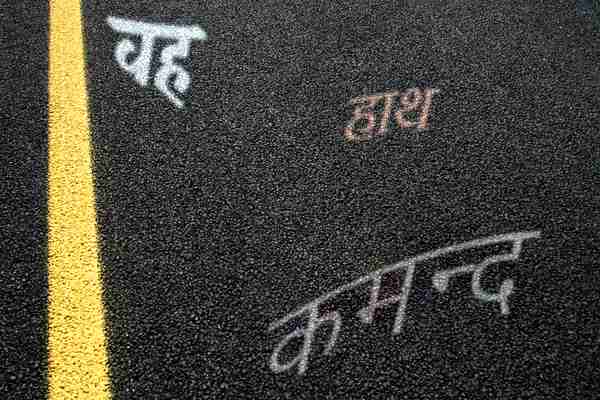 वह
हाथ
कमन्द